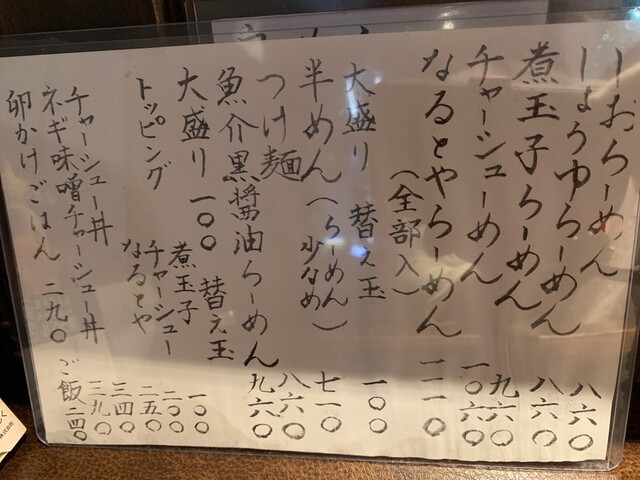 しおらーめん 八六〇
しょうゆらーめん 八六〇
煮玉子らーめん 九六〇
チャーシューめん 一〇六〇
なるとやらーめん 一一一〇
(全部入)
大盛り 替え玉 一〇〇
半めん(らーめん少なめ) 七一〇
つけ麺 八六〇
魚介黒醤油らーめん 九六〇
大盛り 一〇〇 替え玉
トッピング 煮玉子 一〇〇
チャーシュー 二〇〇
なるとや 二五〇
チャーシュー丼 三四〇
ネギ味噌チャーシュー丼 三九〇
卵かけごはん 二九〇 ご飯